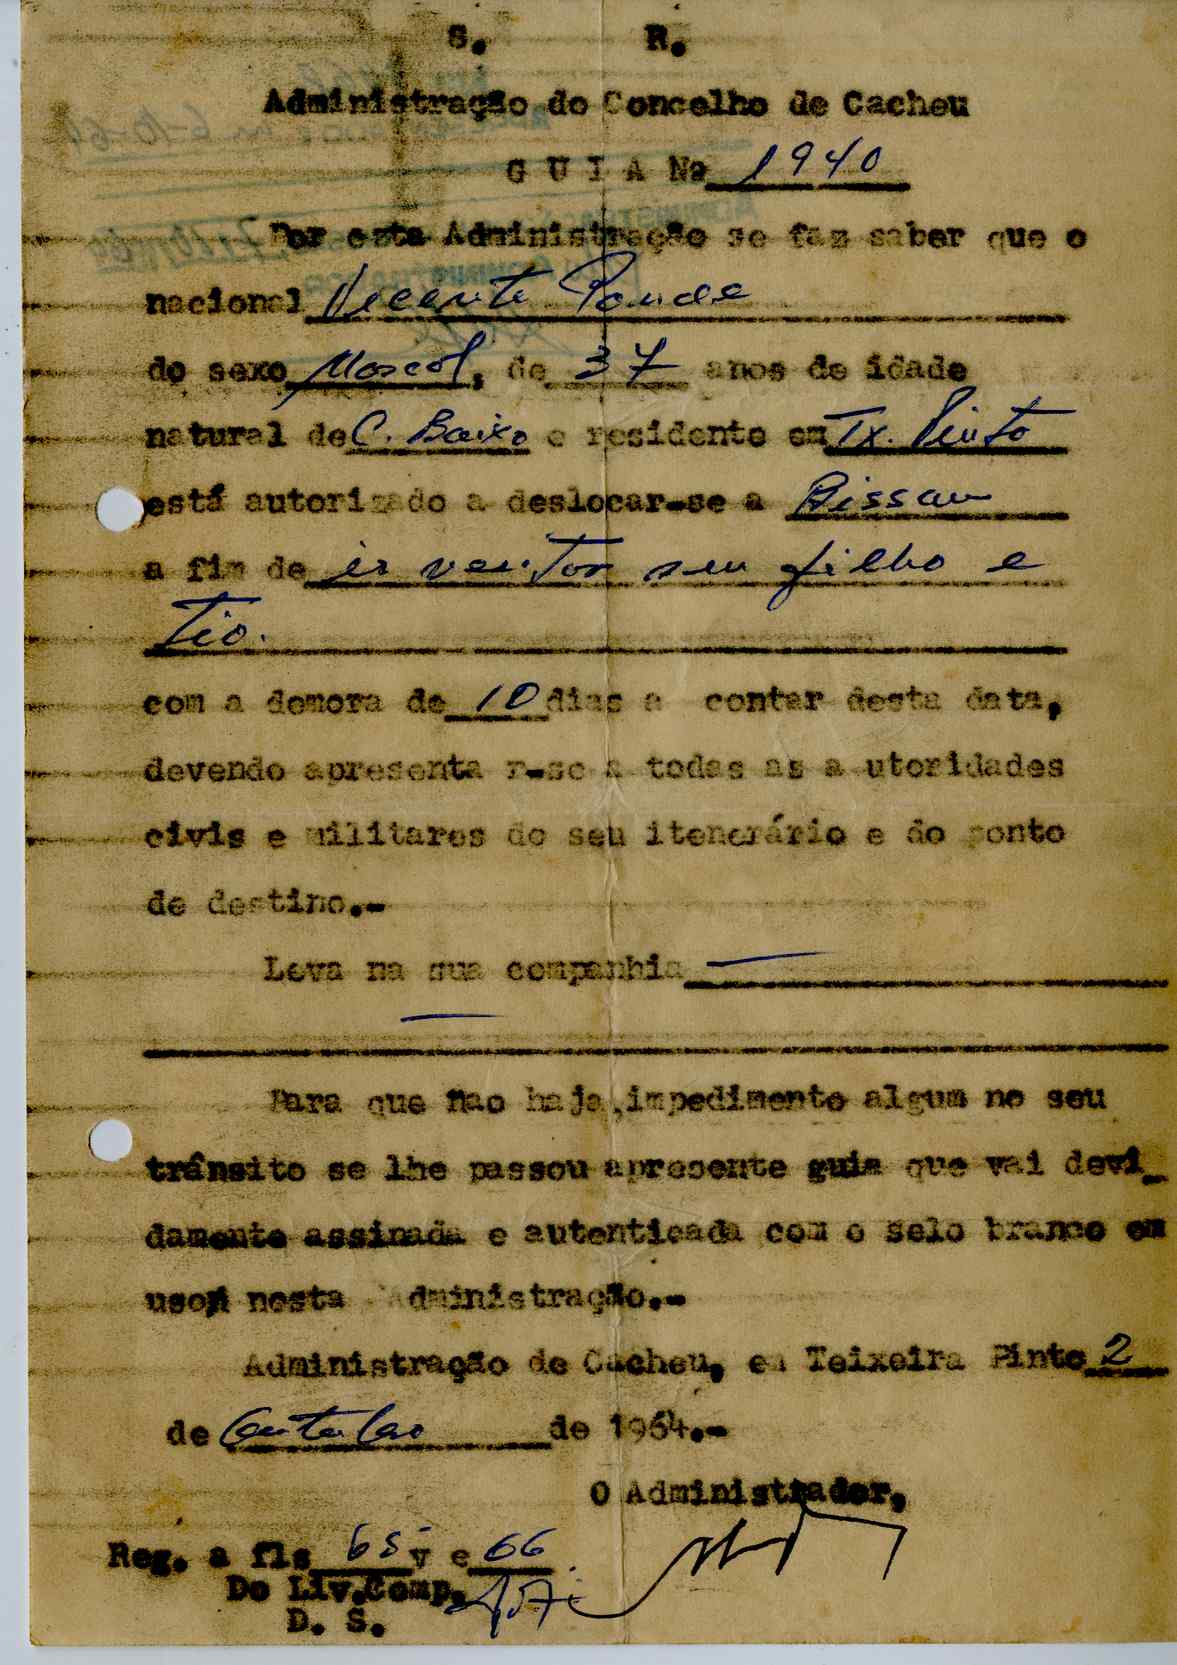 S. R.
Administração do Concelho de Cacheu
G U I A Nº 1940
Por esta Administração se faz saber que o
nacional Vicente
do sexo Mascol, de 37 anos de idade
natural de C. Baixo e residente em Tx. Pinto
está autorizado a deslocar-se a Bissau
a fim de ir visitar seu filho e
Tio.
com a demora de 10 dias a contar desta data,
devendo apresenta r-se a todas as a utoridades
civis e militares do seu itenerário e do ponto
de destino.-
Leva na sua companhia —
—
Para que nao haja,impedimento algum no seu
trânsito se lhe passou apresente guia que vai devi_
damente assinada e autenticada com o selo branco em
uso nesta Administração.-
Administração de Cacheu, em Teixeira Pinto 2
de Outubro de 1964.-
O Administrador,
Reg. a fls 65 v e 66
Do Liv.Comp.
D. S.